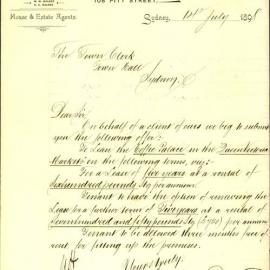 108 PITT STREET,
House & Estate Agents.
Sydney, 14th July 1898
The Town Clerk
Town Hall
Sydney
Dear Sir
On behalf of a client of ours we beg to submit
you the following offer:
To Lease the Coffee Palace in the Queen Victoria
Markets on the following terms, viz:
For a Lease of five years at a rental of
Six hundred pounds per annum
Tenant to have the option of renewing the
Lease for a further term of Five years at a rental of
Seven hundred and fifty pounds (£750) per annum
Tenant to be allowed three months free of
rent for fitting up the premises.
Yours truly